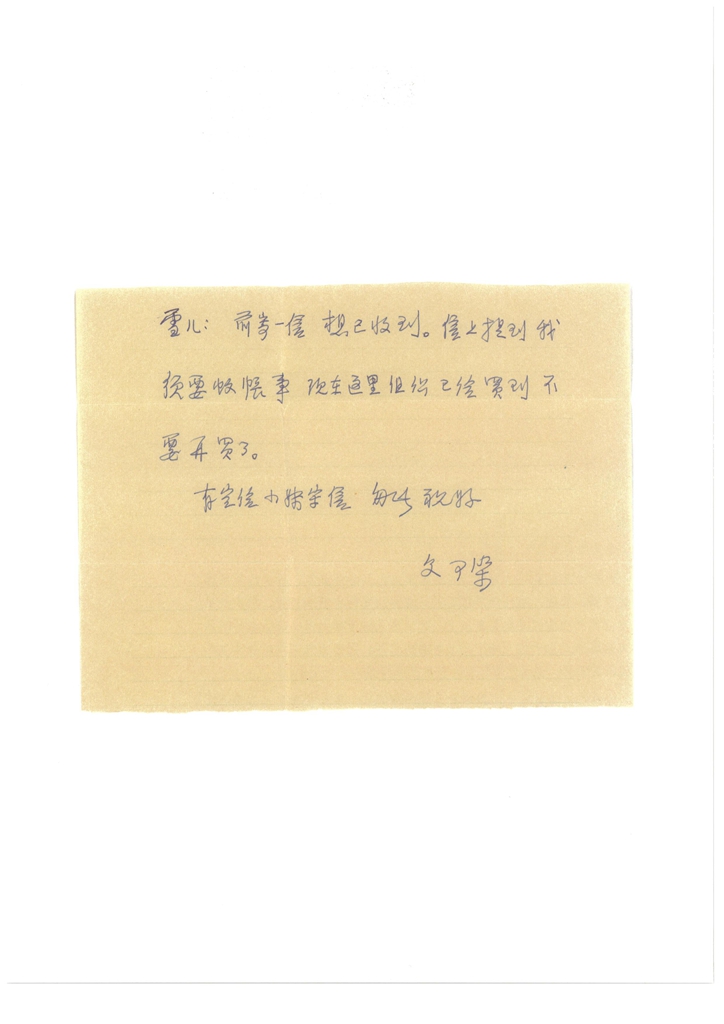 雪儿：前寄一信 想已收到。信上提到 我
须要蚊帐事 现在这里组织已给買到 不
要再買了。
有空给小妹写信 匆此 祝好
文